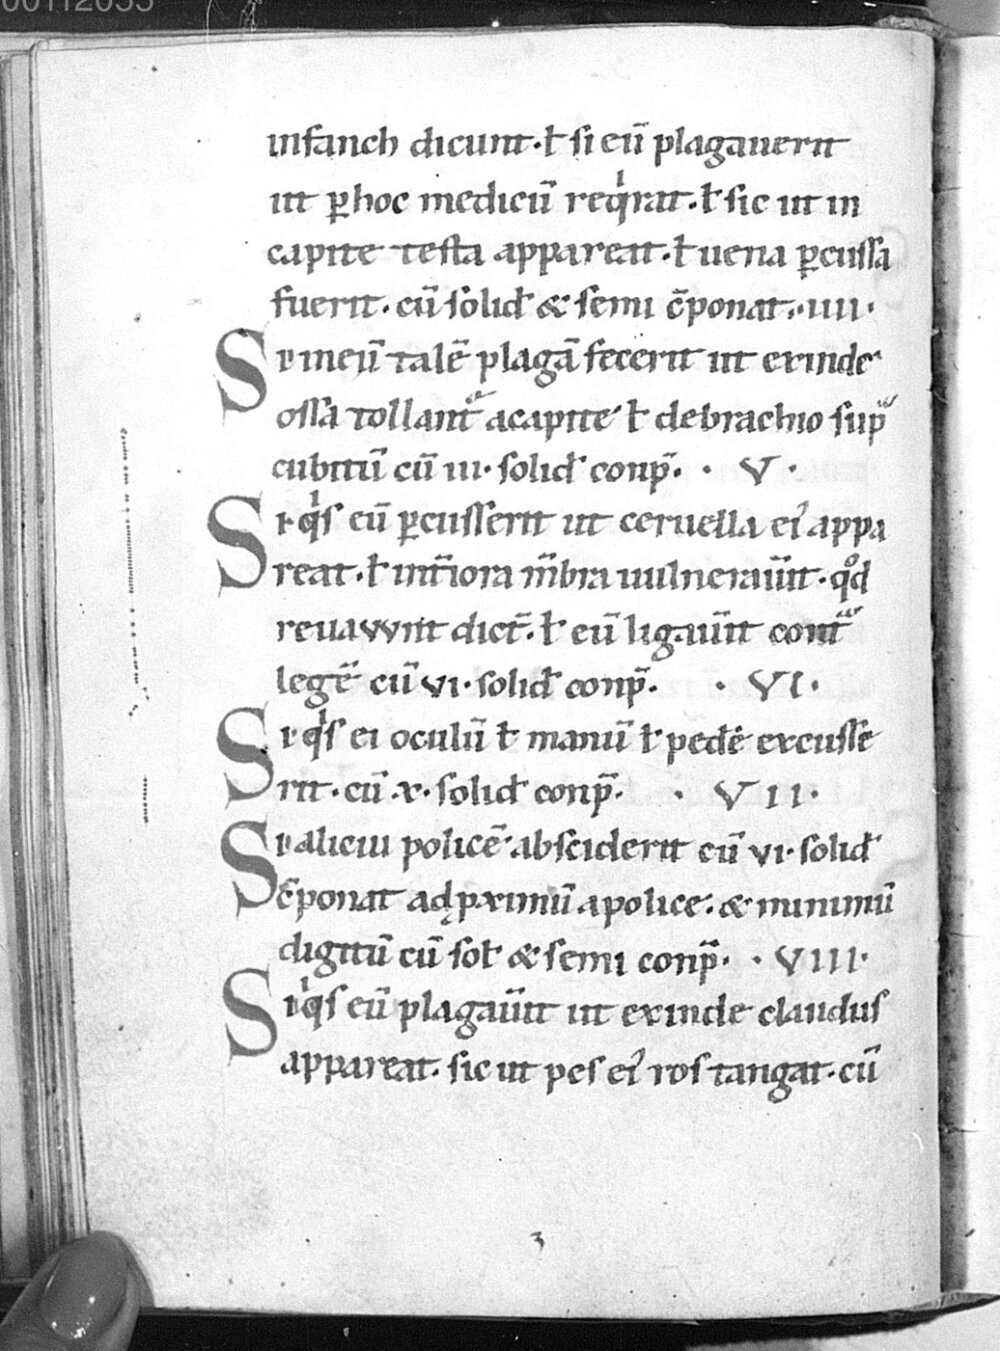 00112053
infanch dicunt·ł si eū plagauerit
ut ꝑhoc medicū reqͥrat·ł sic ut in
capite testa appareat·ł uena ꝑcussa
fuerit· cū solid̛ & semi c̄ponat·,·IIII·
Si in eū talē plagā fecerit ut exinde
ossa tollant᷑ acapite ł debrachio sup̄
cubitū cū III· solid̛ conp̄· · V ·
Si qͥs eū ꝑcusserit ut ceruella ei᷒ appa
reat·ł int̄iora m̄bra uulnerau̅it·qͦd
reuavvnt dict̄·ł eū ligau̅it cont͛
legē cū VI· solid̛ conp̄· · VI·
Si qͥs ei oculū ł manū ł pedē excusse
rit·cū ·x· solid̛ conp̄· · VII·
Si alicui policē absciderit cū VI· solid̛
c̄ponat adp̱ximū apolice· & minimū
digitū cū soł & semi conp̄· · VIII·
Si qͥs eū plagau̅it ut exinde claudus
appareat· sic ut pes ei᷒ ros tangat·cū
3